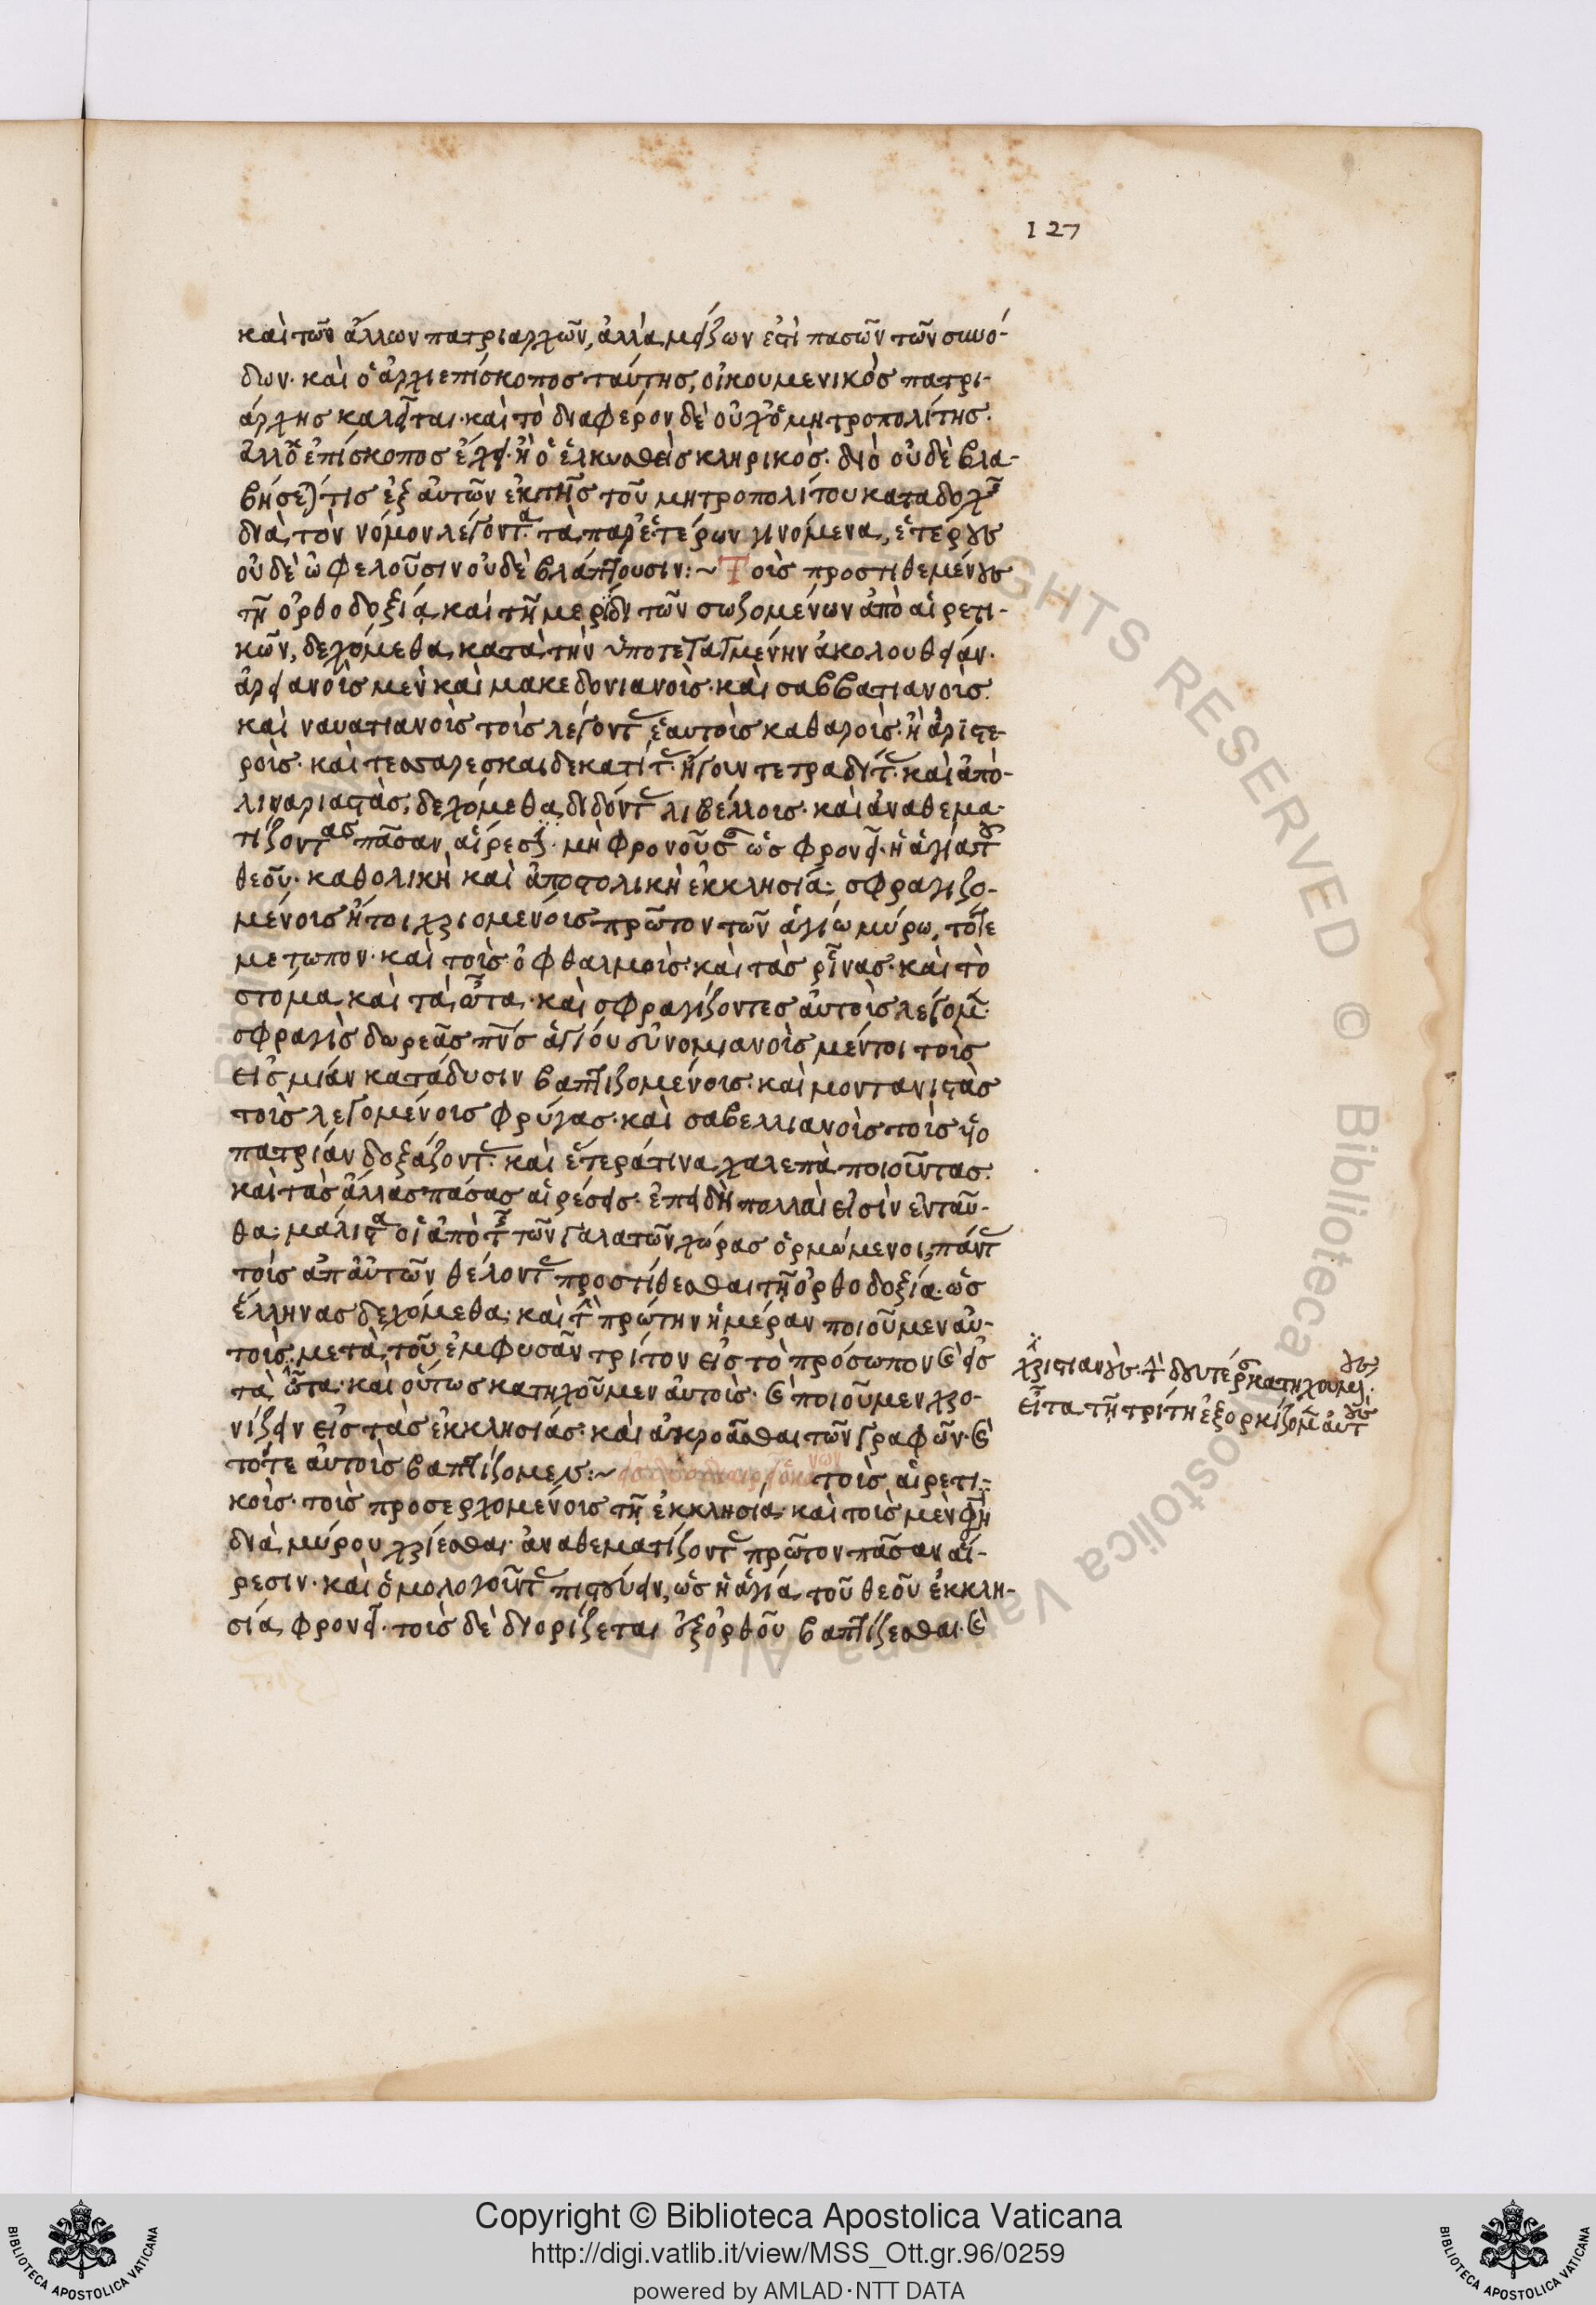 127
καὶ τῶν ἄλλων πατριαρχῶν, ἀλλὰ μείζων ἐστὶ πασῶν τῶν συνό-
δων· καὶ ὁ ἀρχιεπίσκοπος ταύτης, οἰκουμενικὸς πατρι-
άρχης καλεῖται· καὶ τὸ διαφέρον δὲ οὐχ ὁ μητροπολίτης.
ἀλλ ὁ ἐπίσκοπος ἔχει· ἢ ὁ ἑλκυσθεὶς κληρικὸς· διὸ οὐδὲ βλα-
βήσεται τις ἐξ αὐτῶν ἐκ τῆς τοῦ μητροπολίτου καταδοχῆς
διὰ τὸν νόμον λέγοντα· τὰ παρ ἑτέρων γινόμενα, ἑτέρους
οὐδὲ ὠφελοῦσιν οὐδὲ βλάπτουσιν:~ Τοὶς προστιθεμένους
τῇ ὀρθοδοξίᾳ καὶ τῇ μερίδι τῶν σωζομένων ἀπὸ αἱρετι-
κῶν, δεχόμεθα κατὰ τὴν ὑποτεταγμένην ἀκολουθείαν·
ἀρειανοὶς μὲν καὶ μακεδονιανοὶς· καὶ σαββατιανοὶς.
καὶ ναυατιανοὶς τοὶς λέγοντ ἑαυτοὶς καθαροὶς· ἢ ἀριστε-
ροὶς· καὶ τεσσαρεσκαιδεκατίτ· ἤγουν τετραδίτ· καὶ ἀπο-
λιναριαστὰς, δεχόμεθα διδόντ λιβέλλοις· καὶ ἀναθεμα-
τίζοντας πᾶσαν αἵρεσιν· μὴ φρονοῦσαν ὡς φρονεῖ· ἡ ἁγία τοῦ
θεοῦ· καθολικὴ καὶ ἀποστολικὴ ἐκκλησία· σφραγιζο-
μένοις ἤτοι χριομενόις πρῶτον τῶν ἁγίω μύρω, τό τε
μετωπον· καὶ τοὶς ὀφθαλμοὶς· καὶ τὰς ῥῖνας· καὶ τὸ
στόμα καὶ τὰ ὦτα· καὶ σφραγίζοντες αὐτοὶς λέγομεν·
σφραγὶς δωρεᾶς πνς ἁγίου εὐνομιανοὶς μέντοι τοὶς
εἰς μίαν κατάδυσιν βαπτιζομένοις· καὶ μοντανιστὰς
τοὶς λεγομένοις φρύγας· καὶ σαβελλιανοὶς τοὶς υἱο
πατρίαν δοξάζοντ· καὶ ἕτερά τινα χαλεπὰ ποιοῦντας.
καὶ τὰς ἄλλας πάσας αἱρέσεις· ἐπειδὴ πολλαὶ εἰσὶν ἐνταῦ-
θα· μάλιστα οἱ ἀπὸ τῆς τῶν γαλατῶν χώρας ὁρμώμενοι, πάντ
τοὶς ἀπ αὐτῶν θέλοντ προστίθεσθαι τῇ ὀρθοδοξία· ὡς
ἕλληνας δεχόμεθα· καὶ τὴν πρώτην ἡμέραν ποιοῦμεν αὐ-
τοὶς· μετὰ τοῦ ἐμφυσᾶν τρίτον εἰς τὸ πρόσωπον καὶ εἰς
τὰ ὦτα· καὶ οὕτως κατηχοῦμεν αὐτοὶς· καὶ ποιοῦμεν χρο-
νίζειν εἰς τὰς ἐκκλησίας· καὶ ἀκροᾶσθαι τῶν γραφῶν· καὶ
τότε αὐτοὶς βαπτίζομεν:~ τοὶς αἱρετι-
κοὶς· τοὶς προσερχομένοις τῇ ἐκκλησία· καὶ τοὶς μὲν φησὶ
διὰ μύρου χρίεσθαι· ἀναθεματίζοντ πρῶτον πᾶσαν αἵ-
ρεσιν· καὶ ὁμολογοῦντ πιστεύειν, ὡς ἡ ἁγία τοῦ θεοῦ ἐκκλη-
σία φρονεῖ· τοὶς δὲ διορίζεται ἐξ ὀρθοῦ βαπτίζεσθαι· καὶ
χριστιανοὺς· τὴν δευτέραν κατηχουμένους·
εἶτα τῇ τρίτη ἐξορκίζομεν αὐτοὺς
Copyright © Biblioteca Apostolica Vaticana
http://digi.vatlib.it/view/MSS_Ott.gr.96/0259
powered by AMLAD·NTT DATA
BIBLIOTECA APOSTOLICA VATICANA
BIBLIOTECA APOSTOLICA VATICANA